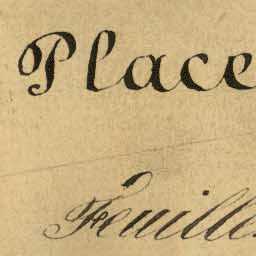 Place
Feuille